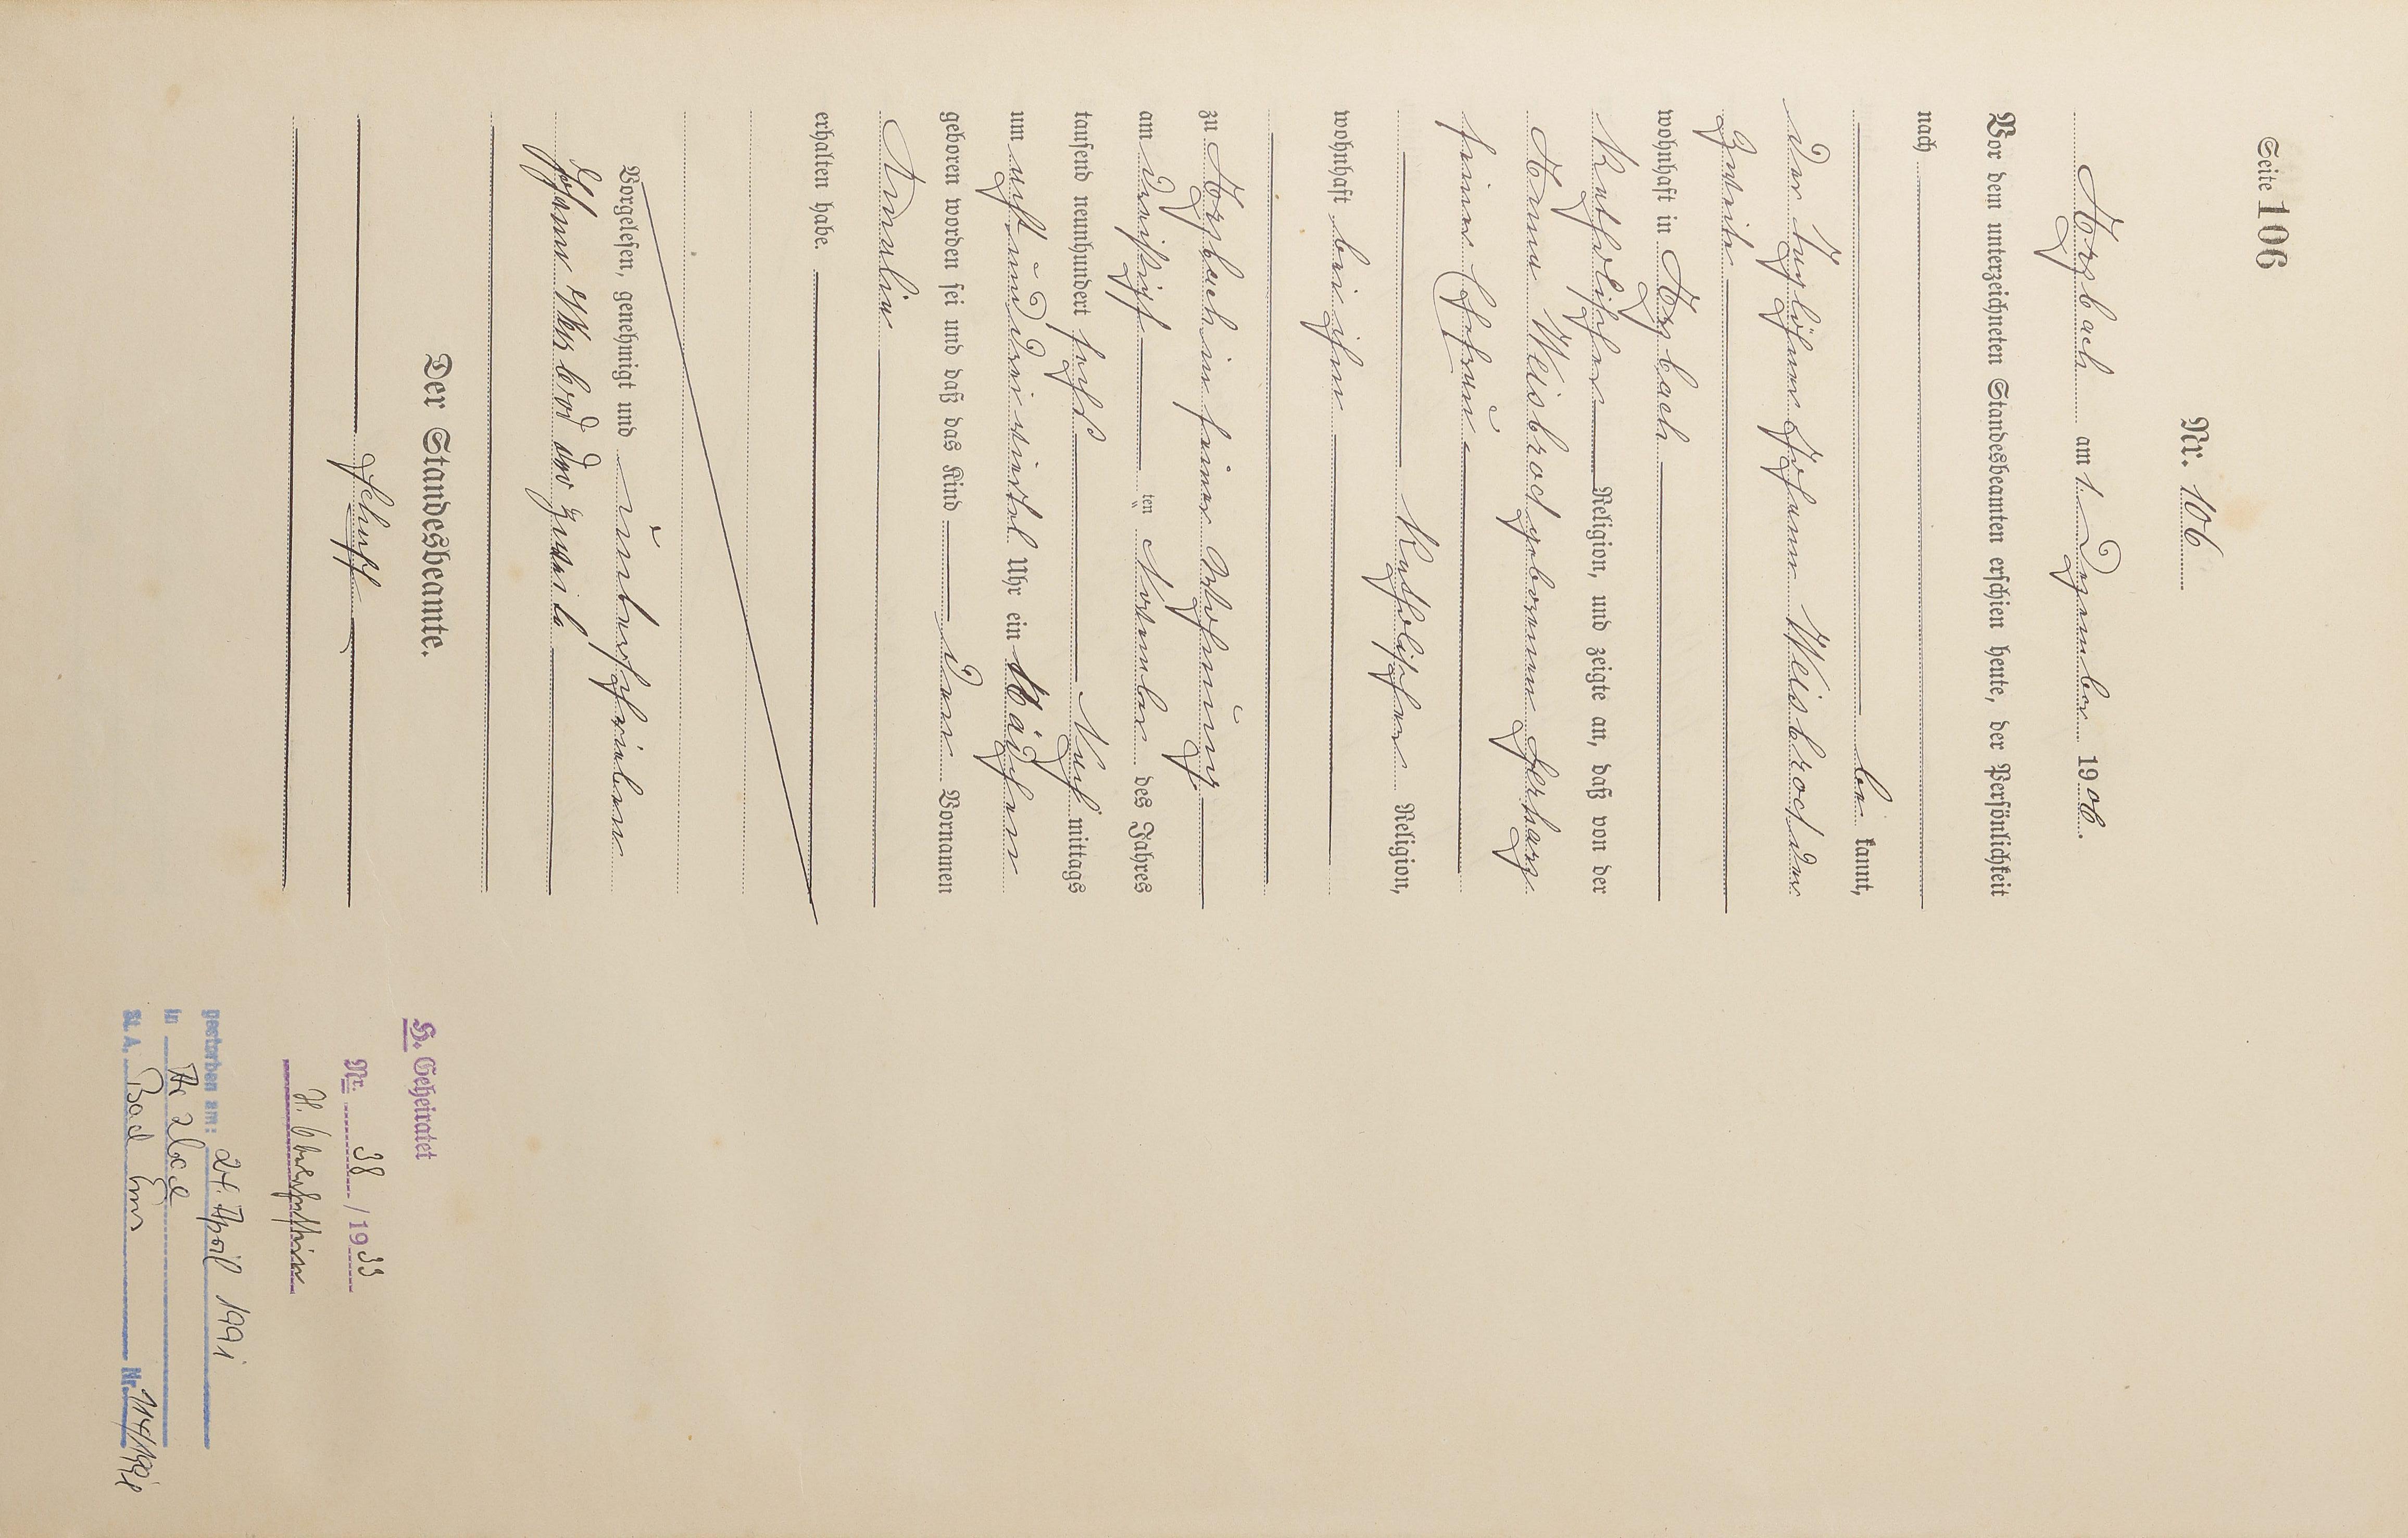 Seite 106
Nr. 106
Arzbach am 1. Dezember 1906.
Vor dem unterzeichneten Standesbeamten erschien heute, der Persönlichkeit
nach
be kannt,
der Taglöhner Johann Weisbrod der
Zweite
wohnhaft in Arzbach
Katholischer Religion, und zeigte an, daß von der
Anna Weisbrod geborenen Herharz
seiner Ehefrau
Katholischer Religion,
wohnhaft bei ihm
zu Arzbach in seiner Wohnung
am dreißigsten November des Jahres
tausend neunhundert sechs Nach mittags
um acht und drei viertel Uhr ein Mädchen
geboren worden sei und daß das Kind den Vornamen
Amalia
erhalten habe.
Vorgelesen, genehmigt und unterschrieben
Johann Weisbrod der Zweite
Der Standesbeamte.
Schupp
H. Geheiratet
Nr. 38 / 1933
gestorben am: 24. April 1991
in Arzbach
St. A. Bad Ems Nr. 114/1991